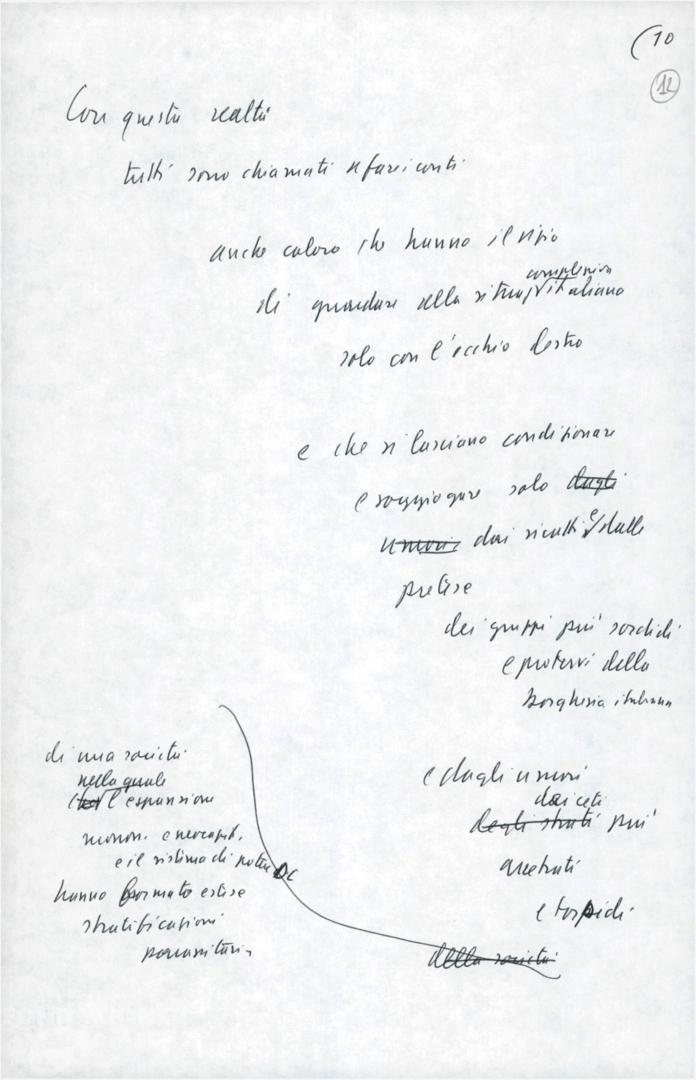 (10
12
Con questa realtà
tutti sono chiamati a fare i conti
anche coloro che hanno il vizio
complessiva
di guardare alla situaz italiana
solo con l'occhio destro
e che si lasciano condizionare
e soggiogare solo dagli
umori dai ricatti e dalle
pretese
dei gruppi più sordidi
e protervi della
borghesia italiana
e dagli umori
dai ceti
degli strati più
arretrati
e torpidi
della società
di una società
nella quale
l'espansione
monop. e neocapit.
e il sistema di potere DC
hanno formato estese
stratificazioni
parassitarie